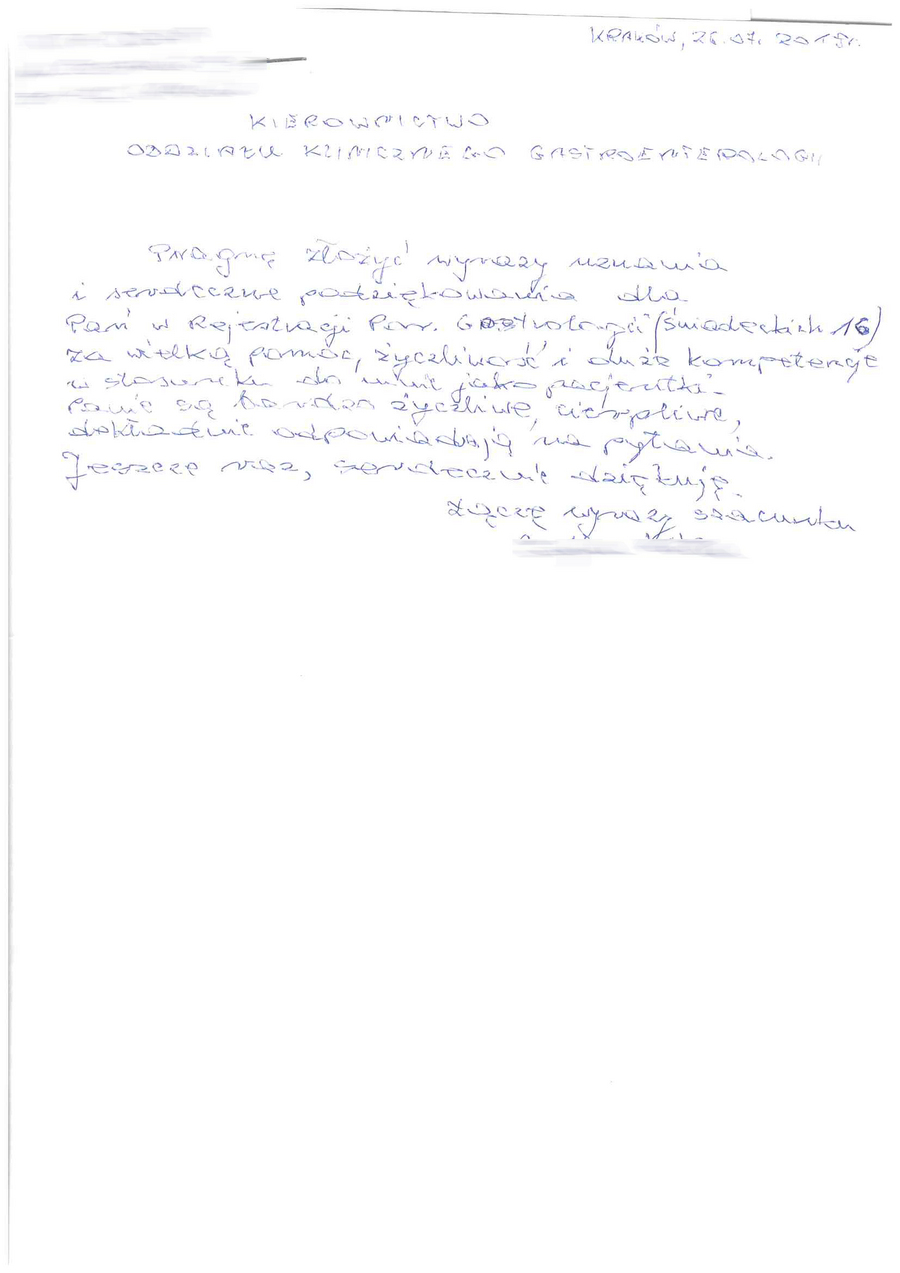 KRAKÓW, 26.07.2019r.
KIEROWNICTWO
ODDZIAŁU KLINICZNEGO GASTROENTEROLOGII
Pragnę złożyć wyrazy uznania
i serdeczne podziękowania dla
Pań w Rejestracji Por. Gastrologii (Śniadeckich 16)
za wielką pomoc, życzliwość i duże kompetencje
w stosunku do mnie jako pacjentki.
Panie są bardzo życzliwe, cierpliwe,
dokładnie odpowiadają na pytania.
Jeszcze raz, serdecznie dziękuję.
Łączę wyrazy szacunku